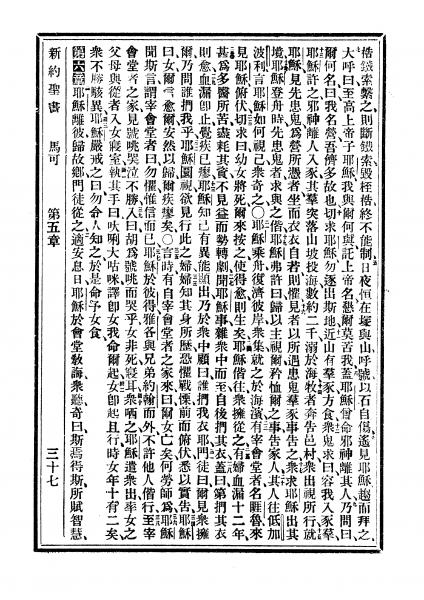 新約聖書 馬可 第五章 三十七
梏鐵索繫之則斷鐵索毀桎梏終不能制日夜恒在塚與山呼號以石自傷遙見耶穌趨而拜之
大呼曰至高上帝子耶穌我與爾何與託上帝名懇爾莫苦我蓋耶穌曾命邪神離其人乃問曰
爾何名曰我名營吾儕多故也切求耶穌勿逐出斯地近山有羣豕方食衆鬼求曰容我入豕羣
耶穌許之邪神離人入豕其羣突落山坡投海數約二千溺於海牧者奔告邑村衆出視所行就
耶穌見先患鬼爲營所憑者坐而衣衣自若則懼見者以所遇患鬼羣豕事告之衆求耶穌出其
境耶穌登舟時先患者求與之偕耶穌弗許曰歸以主視爾矜恤爾之事告家人其人往低加
波利言耶穌如何視己衆奇之〇耶穌乘舟復濟彼岸衆集就之於海濱有宰會堂者名睚魯來
見耶穌俯伏切求曰幼女將死爾來按之使得愈則生矣耶穌偕往衆擁從之有婦血漏十二年
甚爲多醫所苦盡耗其資不見益而勢轉劇聞耶穌事雜衆中而至自後捫其衣蓋曰第捫其衣
則愈血漏即止覺疾已瘳耶穌知己有異能顯出乃於衆中顧曰誰捫我衣門徒曰爾見衆擁
爾乃問誰捫我乎耶穌圜視欲見行此之婦婦知其身所歷恐懼戰慄前而俯伏悉以實告耶穌
曰女爾信愈爾安然以歸爾疾瘳矣〇言時有自宰會堂者之家來曰爾女亡矣何勞師爲耶穌
聞斯言謂宰會堂者曰勿懼惟信而已耶穌於彼得雅各與兄弟約翰而外不許他人偕行至宰
會堂者之家見號咷哭泣不勝入曰胡爲號咷而哭乎女非死寢耳衆哂之耶穌遣衆出率女之
父母與從者入女寢室執其手曰呔唎大咕咪譯即女我命爾起女即起且行時女年十有二矣
衆不勝駭異耶穌嚴戒之曰勿令人知之於是命予女食
第六章耶穌離彼歸故鄉門徒從之適安息日耶穌於會堂敎誨衆聽奇曰斯焉得斯所賦智慧